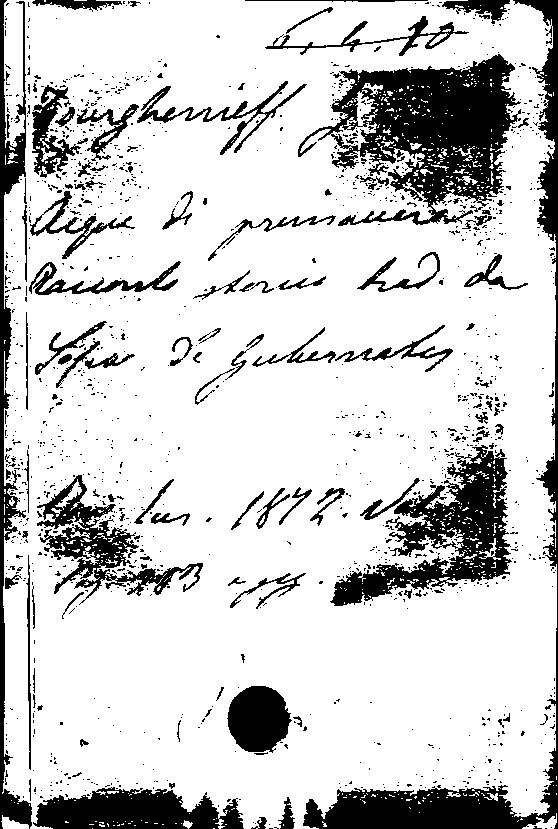 6.4.70
Tourghenieff. J
Acque di primavera
Racconto storico trad. da
Sofia de Gubernatis
Riv. eur. 1872. Vol
pg. 283 e sgg.